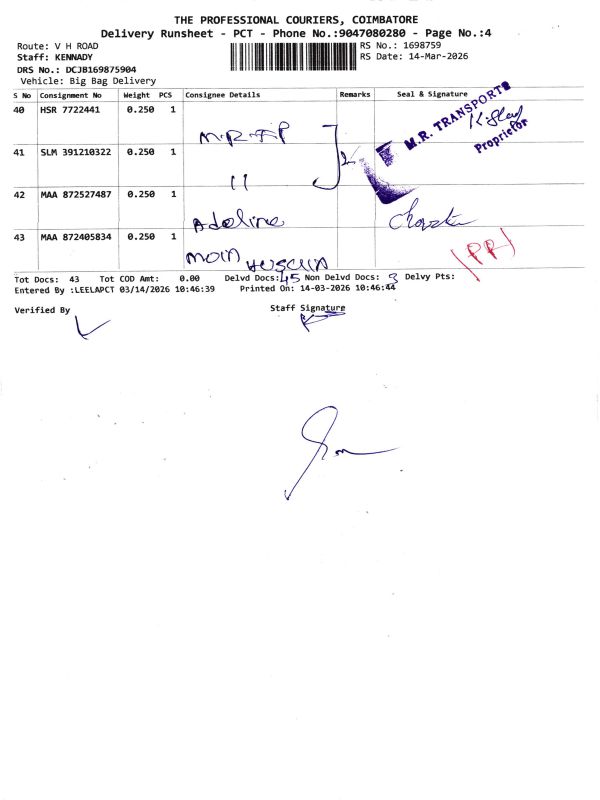 THE PROFESSIONAL COURIERS, COIMBATORE
Delivery Runsheet - PCT - Phone No.:9047080280 - Page No.:4
Route: V H ROAD
RS No.: 1698759
Staff: KENNADY
RS Date: 14-Mar-2026
DRS No.: DCJB169875904
Vehicle: Big Bag Delivery
S No Consignment No Weight PCS Consignee Details Remarks Seal & Signature
40 HSR 7722441 0.250 1
M.R. TRANSPORTS
Proprietor
41 SLM 391210322 0.250 1
11
42 MAA 872527487 0.250 1
Adeline
43 MAA 872405834 0.250 1
MOIN HUSSAIN
(PR)
Tot Docs: 43 Tot COD Amt: 0.00 Delvd Docs: 45 Non Delvd Docs: 3 Delvy Pts:
Entered By :LEELAPCT 03/14/2026 10:46:39 Printed On: 14-03-2026 10:46:44
Verified By
Staff Signature